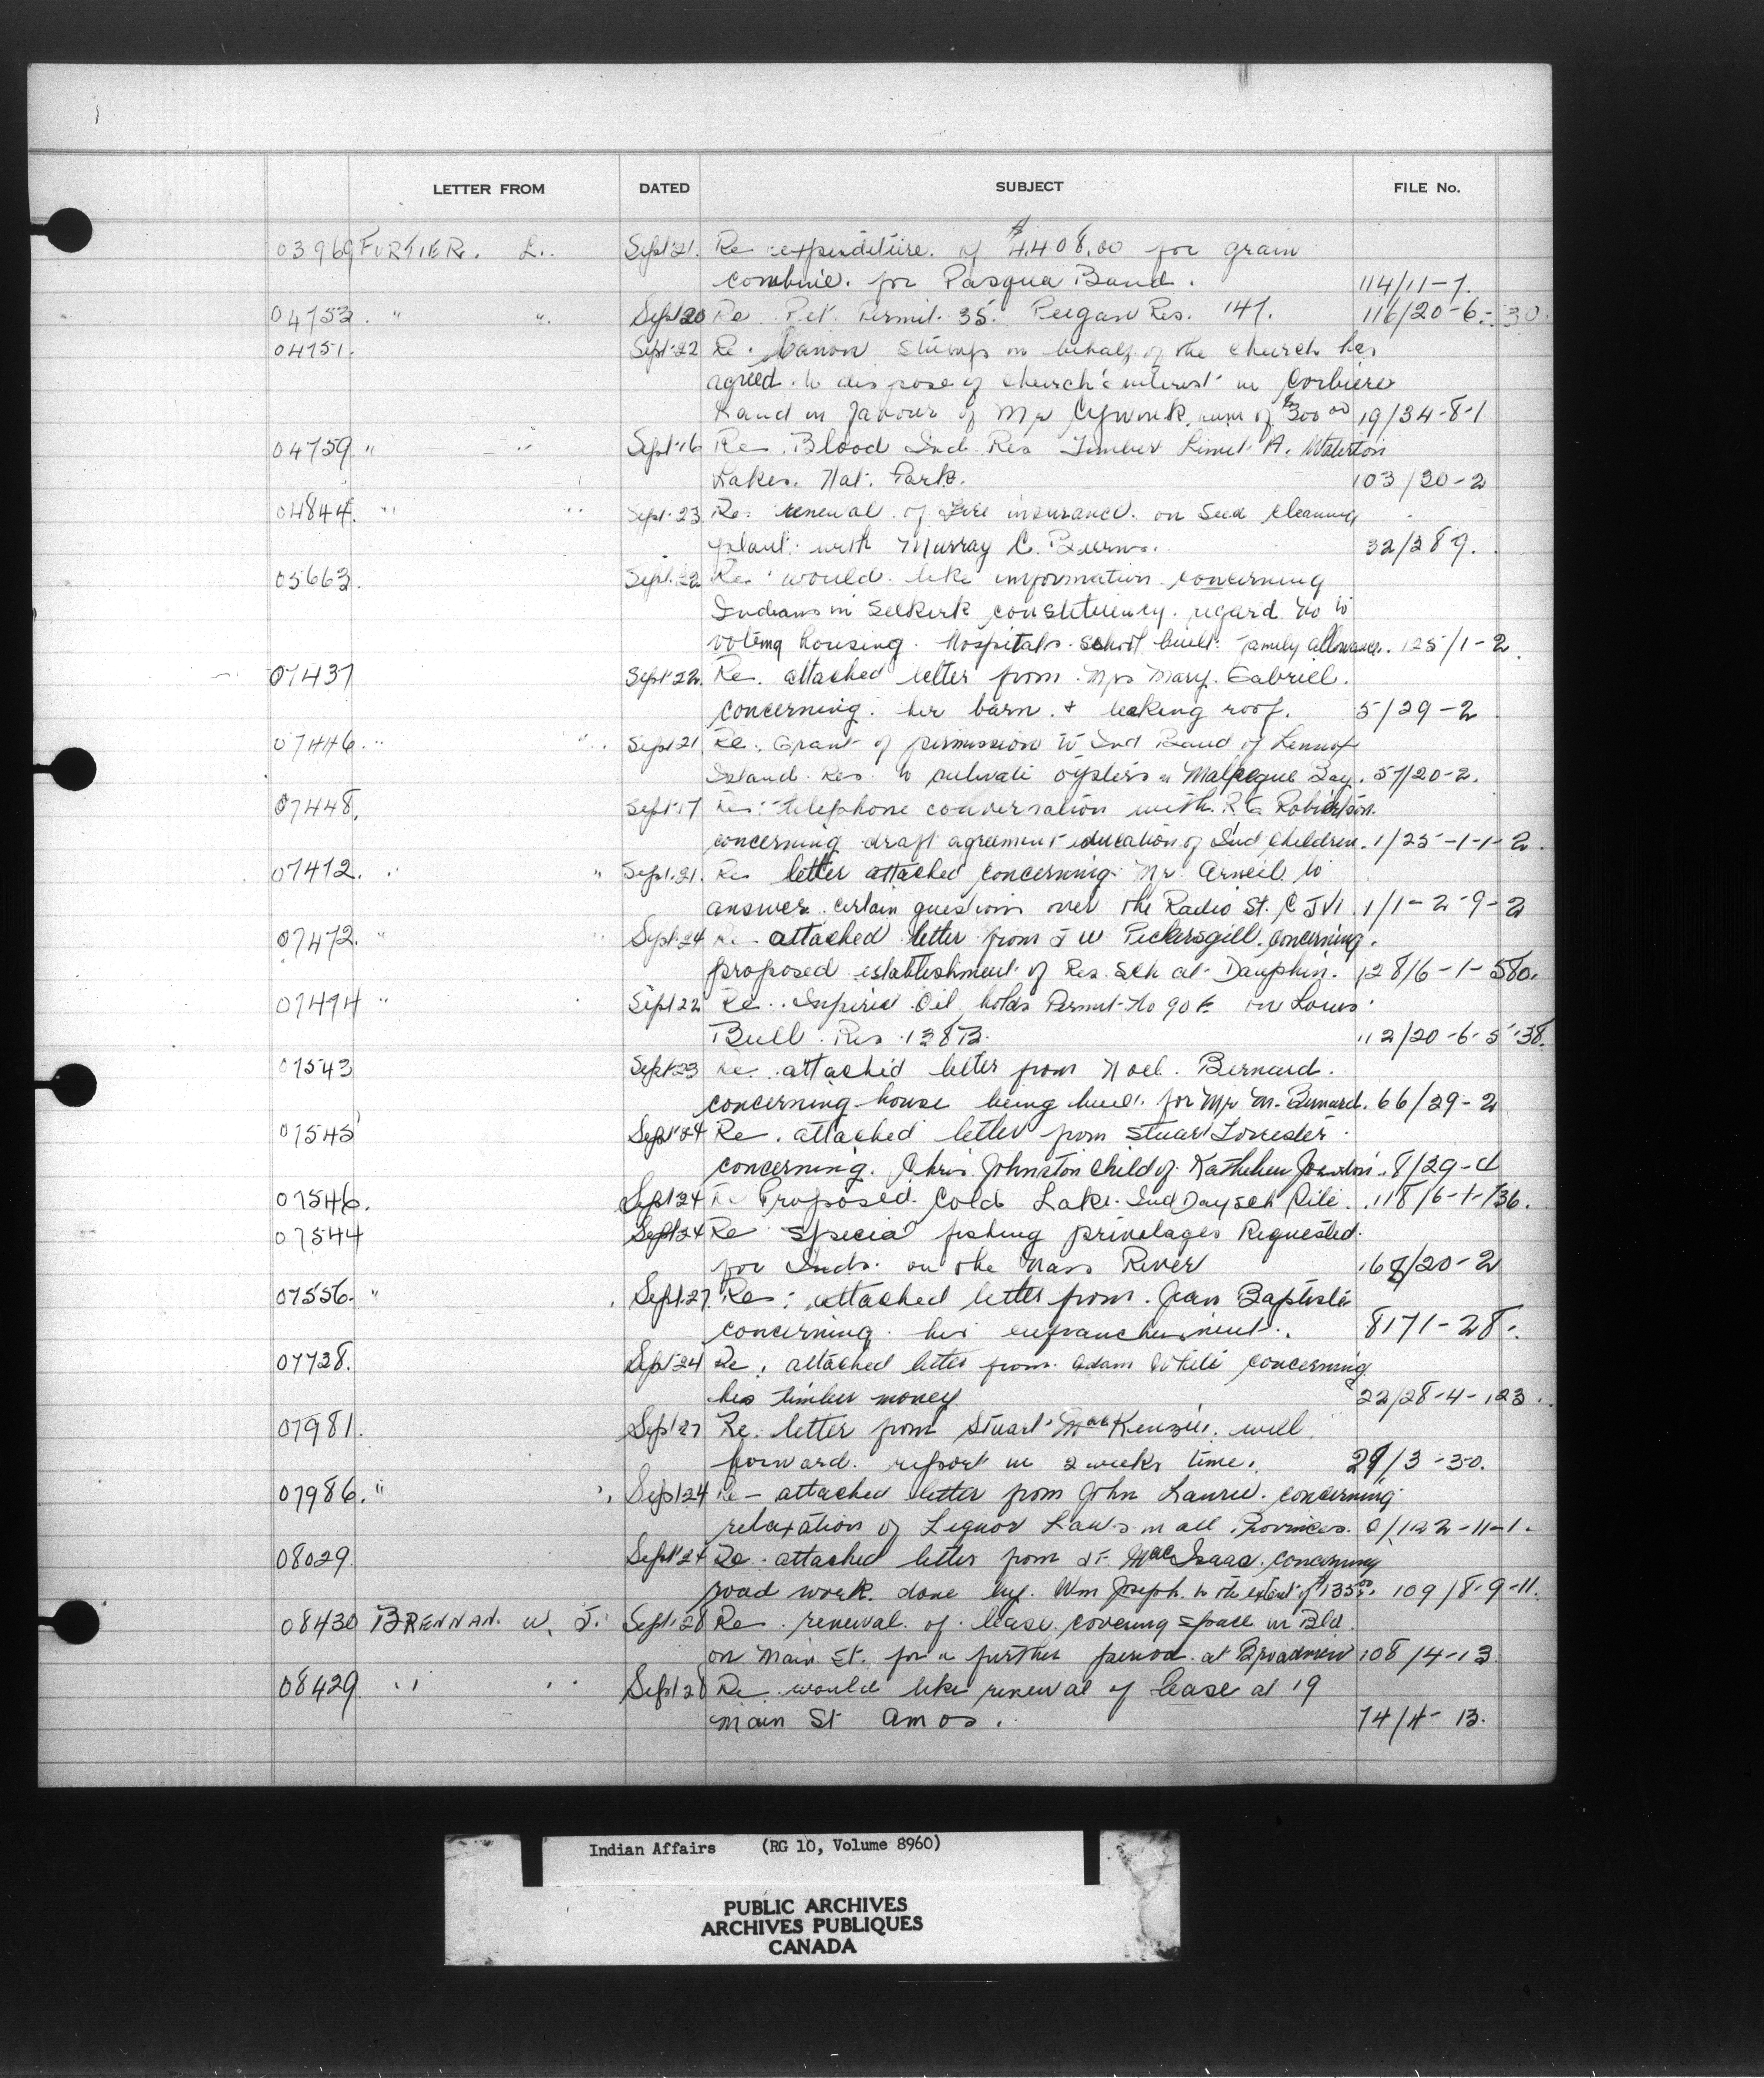 LETTER FROM DATED SUBJECT FILE No.
03969 FORTIER. L. Sept 21. Re expenditure of $4,408.00 for grain
combine. for Pasqua Band. 114/11-7.
04753. " " Sept 20 Re Pet. Permit. 35. Peigan Res. 147. 116/20-6-:30.
04751. Sept 22 Re. Canon Stumps on behalf of the church has
agreed to dispose of church's interest in Corbiere
Land in favour of Mr Cywink sum of $300.00 19/34-8-1
04759 " " Sept 16 Re. Blood Ind Res Timber Limit A. Waterton
Lakes. Nat. Park. 103/20-2
04844. " " Sept 23 Re: renewal of fire insurance on seed cleaning
plant with Murray C. 32/289.
05663. Sept. 22 Re would like information concerning
Indians in Selkirk constituency. regard to
voting housing. Hospitals. school built. Family allowances. 125/1-2.
07437 Sept 22. Re. attached letter from Mrs Mary. Gabriel.
concerning her barn. & leaking roof. 5/29-2
07446. " " Sept 21 Re. Grant of permission to Ind Band of Lennox
Island Res. to cultivate oysters in Malpeque Bay. 57/20-2.
07448. Sept 17 Re: telephone conversation with R G Robertson.
concerning draft agreement education of Ind Children. 1/25-1-1-2.
07412. " " Sept. 21. Re letter attached concerning Mr. Arneil to
answer certain questions over the Radio St. C JVI. 1/1-2-9-2
07472. " " Sept. 24 Re attached letter from J W Pickersgill. concerning.
proposed establishment of Res. Sch at Dauphin. 128/6-1-580.
07494 " Sept 22 Re. Imperial Oil holds Permit No 90 on Louis
Bull. Res. 138B. 112/20-6-5-38.
07543 Sept 23 Re. attached letter from Noel. Bernard.
concerning house being built for Mr M. Bernard. 66/29-2
07545 Sept 24 Re. attached letter from Stuart Forrester.
concerning. Chris Johnston child of 8/29-4
07546. Sept 24 Re Proposed. Cold Lake. Ind Day sch Site. 118/6-1-136.
07544 Sept 24 Re Special fishing privelages Requested.
for Inds. on the Nass River 168/20-2
07556. " Sept. 27 Re: attached letter from. Jean Baptiste
concerning. his enfranchisement. 8171-28.
07738. Sept 24 Re. attached letter from. Adam White concerning
his timber money 22/28-4-123.
07981. Sept 27 Re. letter from Stuart MacKenzie. will
forward. report in 2 weeks time. 29/3-30.
07986. " " Sept 24 Re - attached letter from John Laurie. concerning
relaxation of Liquor Laws in all Provinces. 0/122-11-1.
08029. Sept 24 Re attached letter from MacIsaac. concerning
road work. done by. Wm Joseph. to the extent of $135.00. 109/8-9-11.
08430 BRENNAN. W. J. Sept 28 Re. renewal of lease covering space in Bld.
on Main St. for a further period. at Broadview 108/4-13
08429 " " Sept 28 Re would like renewal of lease at 19
main St Amos. 74/4-13.
Indian Affairs (RG 10, Volume 8960)
PUBLIC ARCHIVES
ARCHIVES PUBLIQUES
CANADA